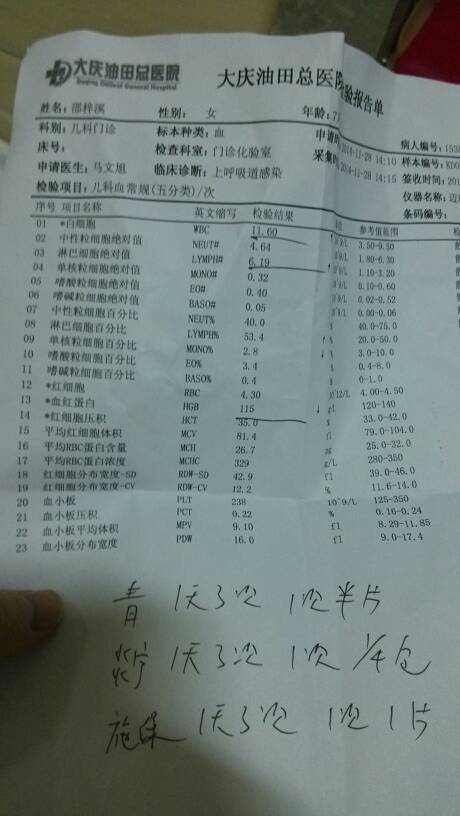 大庆油田总医院 大庆油田总医院检验报告单
Daqing Oilfield General Hospital
姓名: 邵梓溪 性别: 女 年龄: 7
科别: 儿科门诊 标本种类: 血 申请时 2014-11-28 14:10 病人编号: 1538
床号: 检查科室: 门诊化验室 采集时 2014-11-28 14:15 样本编号: KD0
申请医生: 马文旭 临床诊断: 上呼吸道感染 签收时间: 201
检验项目: 儿科血常规(五分类)/次 仪器名称: 迈
条码编号:
序号 项目名称 英文缩写 检验结果 单位 参考值范围
01 *白细胞 WBC 11.60 10^9/L 3.50-9.50
02 中性粒细胞绝对值 NEUT# 4.64 10^9/L 1.80-6.30
03 淋巴细胞绝对值 LYMPH# 6.19 10^9/L 1.10-3.20
04 单核粒细胞绝对值 MONO# 0.32 10^9/L 0.10-0.60
05 嗜酸粒细胞绝对值 EO# 0.40 10^9/L 0.02-0.52
06 嗜碱粒细胞绝对值 BASO# 0.05 10^9/L 0.00-0.06
07 中性粒细胞百分比 NEUT% 40.0 % 40.0-75.0
08 淋巴细胞百分比 LYMPH% 53.4 % 20.0-50.0
09 单核细胞百分比 MONO% 2.8 % 3.0-10.0
10 嗜酸粒细胞百分比 EO% 3.4 % 0.4-8.0
11 嗜碱粒细胞百分比 BASO% 0.4 % 0-1.0
12 *红细胞 RBC 4.30 10^12/L 4.00-4.50
13 *血红蛋白 HGB 115 g/L 120-140
14 *红细胞压积 HCT 35.0 % 33.0-42.0
15 平均红细胞体积 MCV 81.4 fl 79.0-104.0
16 平均RBC蛋白含量 MCH 26.7 pg 25.0-32.0
17 平均RBC蛋白浓度 MCHC 329 g/L 280-350
18 红细胞分布宽度-SD RDW-SD 42.9 fl 39.0-46.0
19 红细胞分布宽度-CV RDW-CV 12.2 % 11.6-14.0
20 血小板 PLT 238 10^9/L 125-350
21 血小板压积 PCT 0.22 % 0.16-0.24
22 血小板平均体积 MPV 9.10 fl 8.29-11.85
23 血小板分布宽度 PDW 16.0 fl 9.0-17.4
青 1天3次 1次半片
1天3次 1次 1/4包
施保 1天3次 1次1片